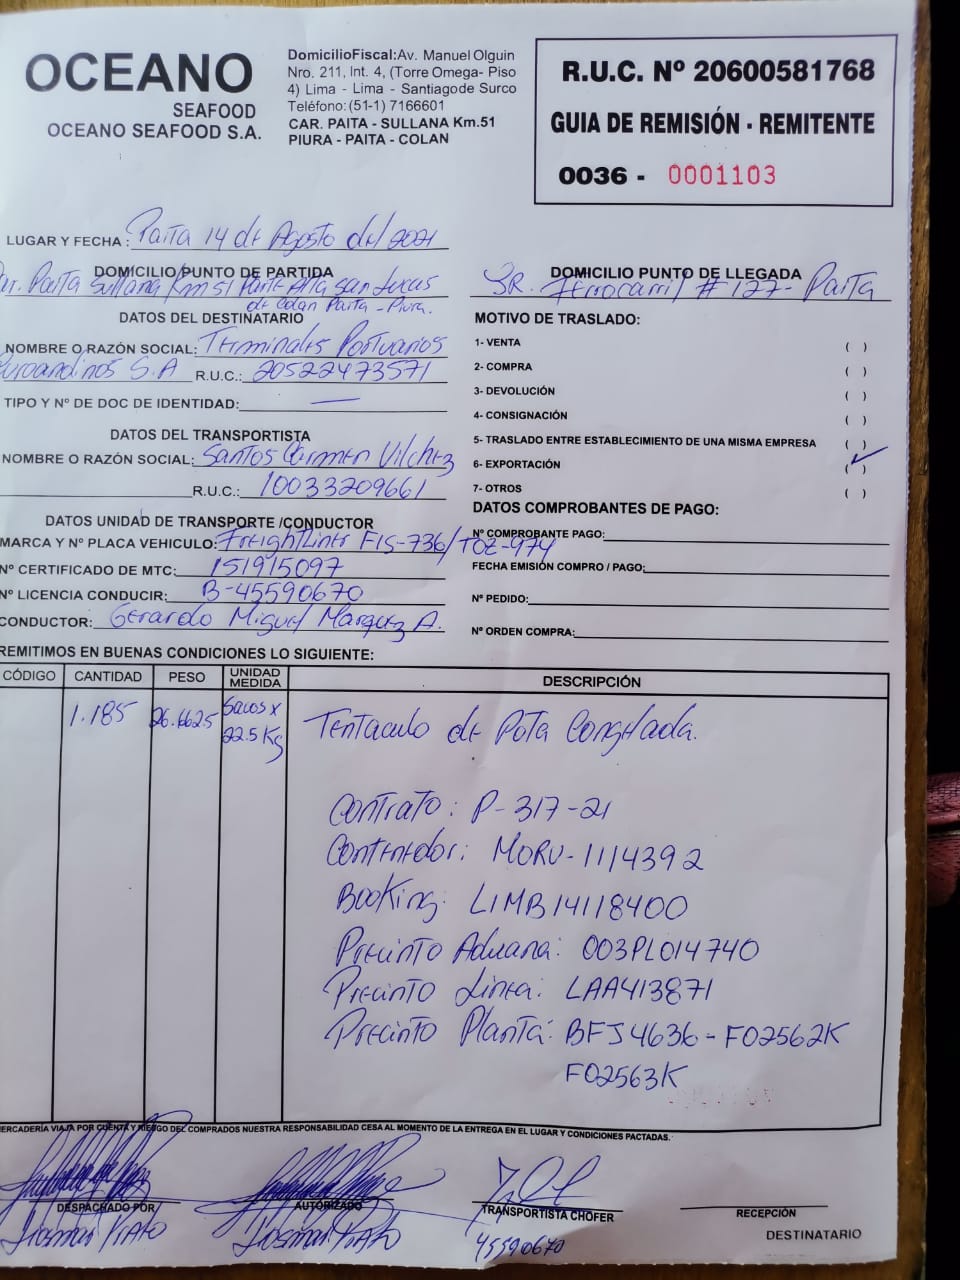 OCEANO
SEAFOOD
OCEANO SEAFOOD S.A.
DomicilioFiscal:Av. Manuel Olguin
Nro. 211, Int. 4, (Torre Omega- Piso
4) Lima - Lima - Santiagode Surco
Teléfono:(51-1) 7166601
CAR. PAITA - SULLANA Km.51
PIURA - PAITA - COLAN
R.U.C. Nº 20600581768
GUIA DE REMISIÓN - REMITENTE
0036 - 0001103
LUGAR Y FECHA : Paita 14 de Agosto del 2021
DOMICILIO PUNTO DE PARTIDA
Paita Sullana Km 51 Parte Alta San Lucas
de Colan Paita - Piura.
DOMICILIO PUNTO DE LLEGADA
JR. Ferrocarril # 127- Paita
DATOS DEL DESTINATARIO
NOMBRE O RAZÓN SOCIAL: Terminales Portuarios
Euroandinos S.A R.U.C.: 20522473571
TIPO Y Nº DE DOC DE IDENTIDAD: —
DATOS DEL TRANSPORTISTA
NOMBRE O RAZÓN SOCIAL: Santos Carmen Vilchez
R.U.C.: 10033209661
DATOS UNIDAD DE TRANSPORTE /CONDUCTOR
MARCA Y Nº PLACA VEHICULO: Freightliner F1S-736/TOZ-974
Nº CERTIFICADO DE MTC: 151915097
Nº LICENCIA CONDUCIR: B-45590670
CONDUCTOR: Gerardo Miguel Marquez A.
MOTIVO DE TRASLADO:
1- VENTA ( )
2- COMPRA ( )
3- DEVOLUCIÓN ( )
4- CONSIGNACIÓN ( )
5- TRASLADO ENTRE ESTABLECIMIENTO DE UNA MISMA EMPRESA ( )
6- EXPORTACIÓN (✓)
7- OTROS ( )
DATOS COMPROBANTES DE PAGO:
Nº COMPROBANTE PAGO:
FECHA EMISIÓN COMPRO / PAGO:
Nº PEDIDO:
Nº ORDEN COMPRA:
REMITIMOS EN BUENAS CONDICIONES LO SIGUIENTE:
CÓDIGO CANTIDAD PESO UNIDAD MEDIDA DESCRIPCIÓN
1.185 26.6625 Sacos x 22.5 Kg Tentaculo de Pota Congelada.
Contrato: P-317-21
Contenedor: MORU-1114392
Booking: LIMB14118400
Precinto Aduana: 003PL014740
Precinto Linea: LAA413871
Precinto Planta: BFJ4636 - F02562K
F02563K
MERCADERÍA VIAJA POR CUENTA Y RIESGO DEL COMPRADOS NUESTRA RESPONSABILIDAD CESA AL MOMENTO DE LA ENTREGA EN EL LUGAR Y CONDICIONES PACTADAS.
DESPACHADO POR
AUTORIZADO
TRANSPORTISTA CHOFER
45590670
RECEPCIÓN
DESTINATARIO